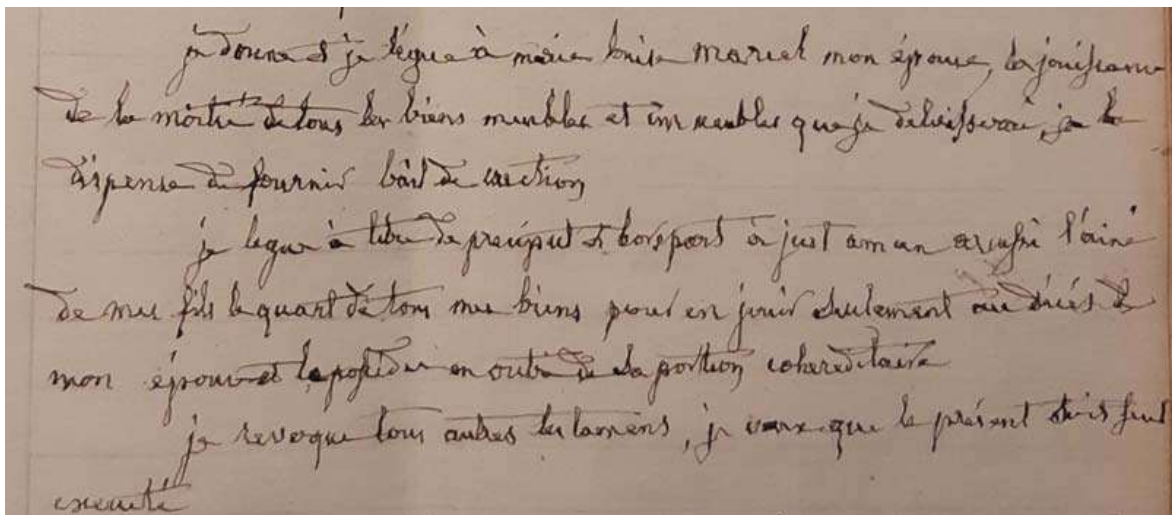 je donne et je légue à marie louise maruel mon épouse, la jouissance
de la moitié de tous les biens meubles et immeubles que je delaisserai, je la
dispense de fournir bail de caution
je legue à titre de preciput et hors part à just aman l'ainé
de mes fils le quart de tous mes biens pour en jouir seulement au décés de
mon épouse et le posseder en outre de sa portion cohereditaire
je revoque tous autres testamens, je veux que le présent soit seul
executé